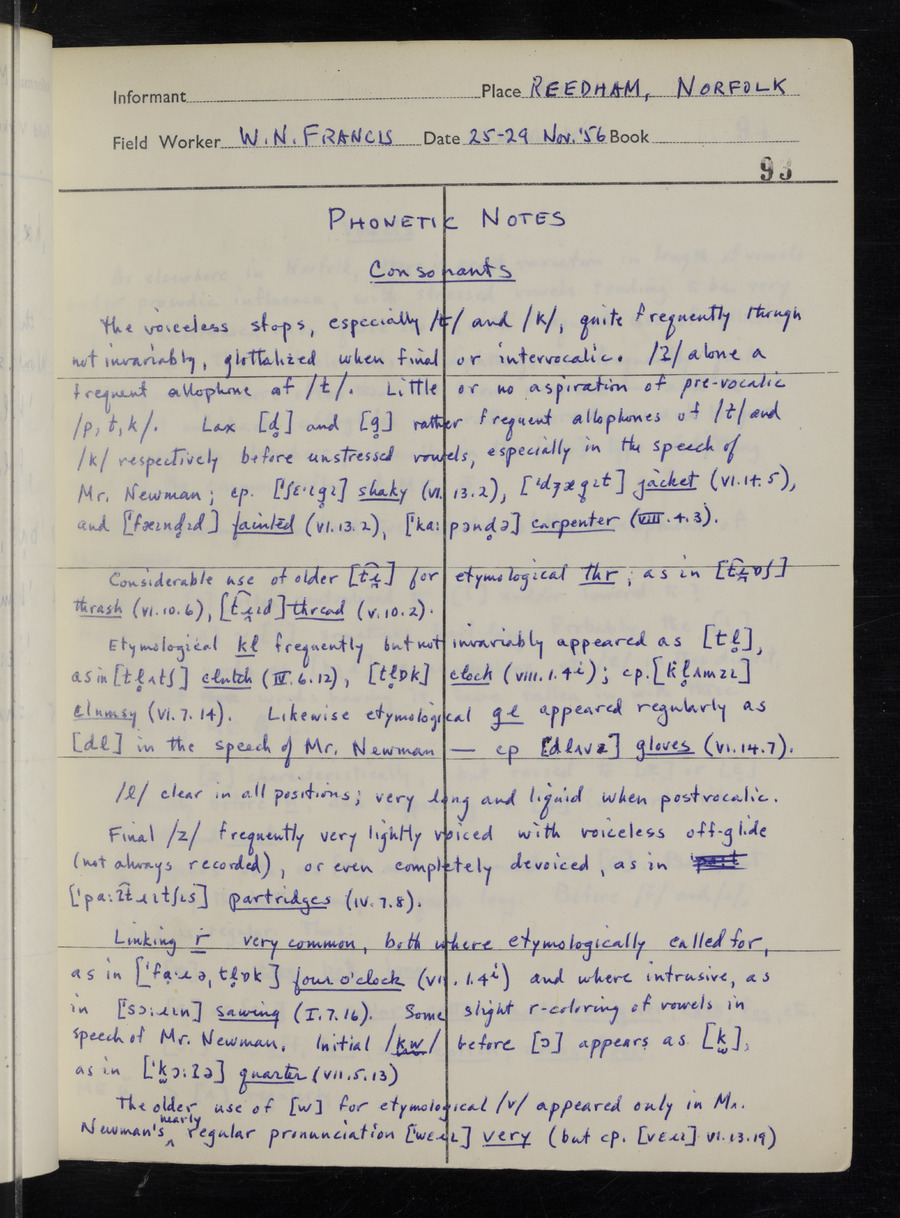 Informant Place REEDHAM, NORFOLK
Field Worker W.N. FRANCIS Date 25-29 Nov. '56 Book
93
PHONETIC NOTES
Consonants
The voiceless stops, especially /t/ and /k/, quite frequently though
not invariably, glottalized when final or intervocalic. /ʔ/ alone a
frequent allophone of /t/. Little or no aspiration of pre-vocalic
/p, t, k/. Lax [d̥] and [g̥] rather frequent allophones of /t/ and
/k/ respectively before unstressed vowels, especially in the speech of
Mr. Newman; cp. ['ʃɛ·ɪg̥ɪ] shaky (VI. 13.2), ['dʒæg̥ɪt] jacket (VI.14.5),
and ['fæɪnd̥ɪd] fainted (VI.13.2), ['ka:pənd̥ə] carpenter (VIII.4.3).
Considerable use of older [t͡ɹ̥] for etymological thr; as in [t͡ɹ̥ɒʃ]
thrash (VI.10.6), [t͡ɹ̥ɪd] thread (V.10.2).
Etymological kl frequently but not invariably appeared as [tl̥],
as in [tl̥ʌtʃ] clutch (IV.6.12), [tl̥ɒk] clock (VIII.1.4ⁱ); cp. [kl̥ʌmzɪ]
clumsy (VI.7.14). Likewise etymological gl appeared regularly as
[dl] in the speech of Mr. Newman — cp [dlʌvz] gloves (VI.14.7).
/l/ clear in all positions; very long and liquid when postvocalic.
Final /z/ frequently very lightly voiced with voiceless off-glide
(not always recorded), or even completely devoiced, as in
['pa:ʔt͡ɹɪtʃɪs] partridges (IV.7.8).
Linking r very common, both where etymologically called for,
as in ['fɑ̣·ɹə, tl̥ɒk] four o'clock (VII.1.4ⁱ) and where intrusive, as
in ['sɔ:ɹɪn] sawing (I.7.16). Some slight r-coloring of vowels in
speech of Mr. Newman. Initial /kw/ before [ɔ] appears as [k̫],
as in ['k̫ɔ:ʔə] quarter (VII.5.13)
The older use of [w] for etymological /v/ appeared only in Mr.
Newman's nearly regular pronunciation ['wɛɹɪ] very (but cp. [vɛɹɪ] VI.13.19)